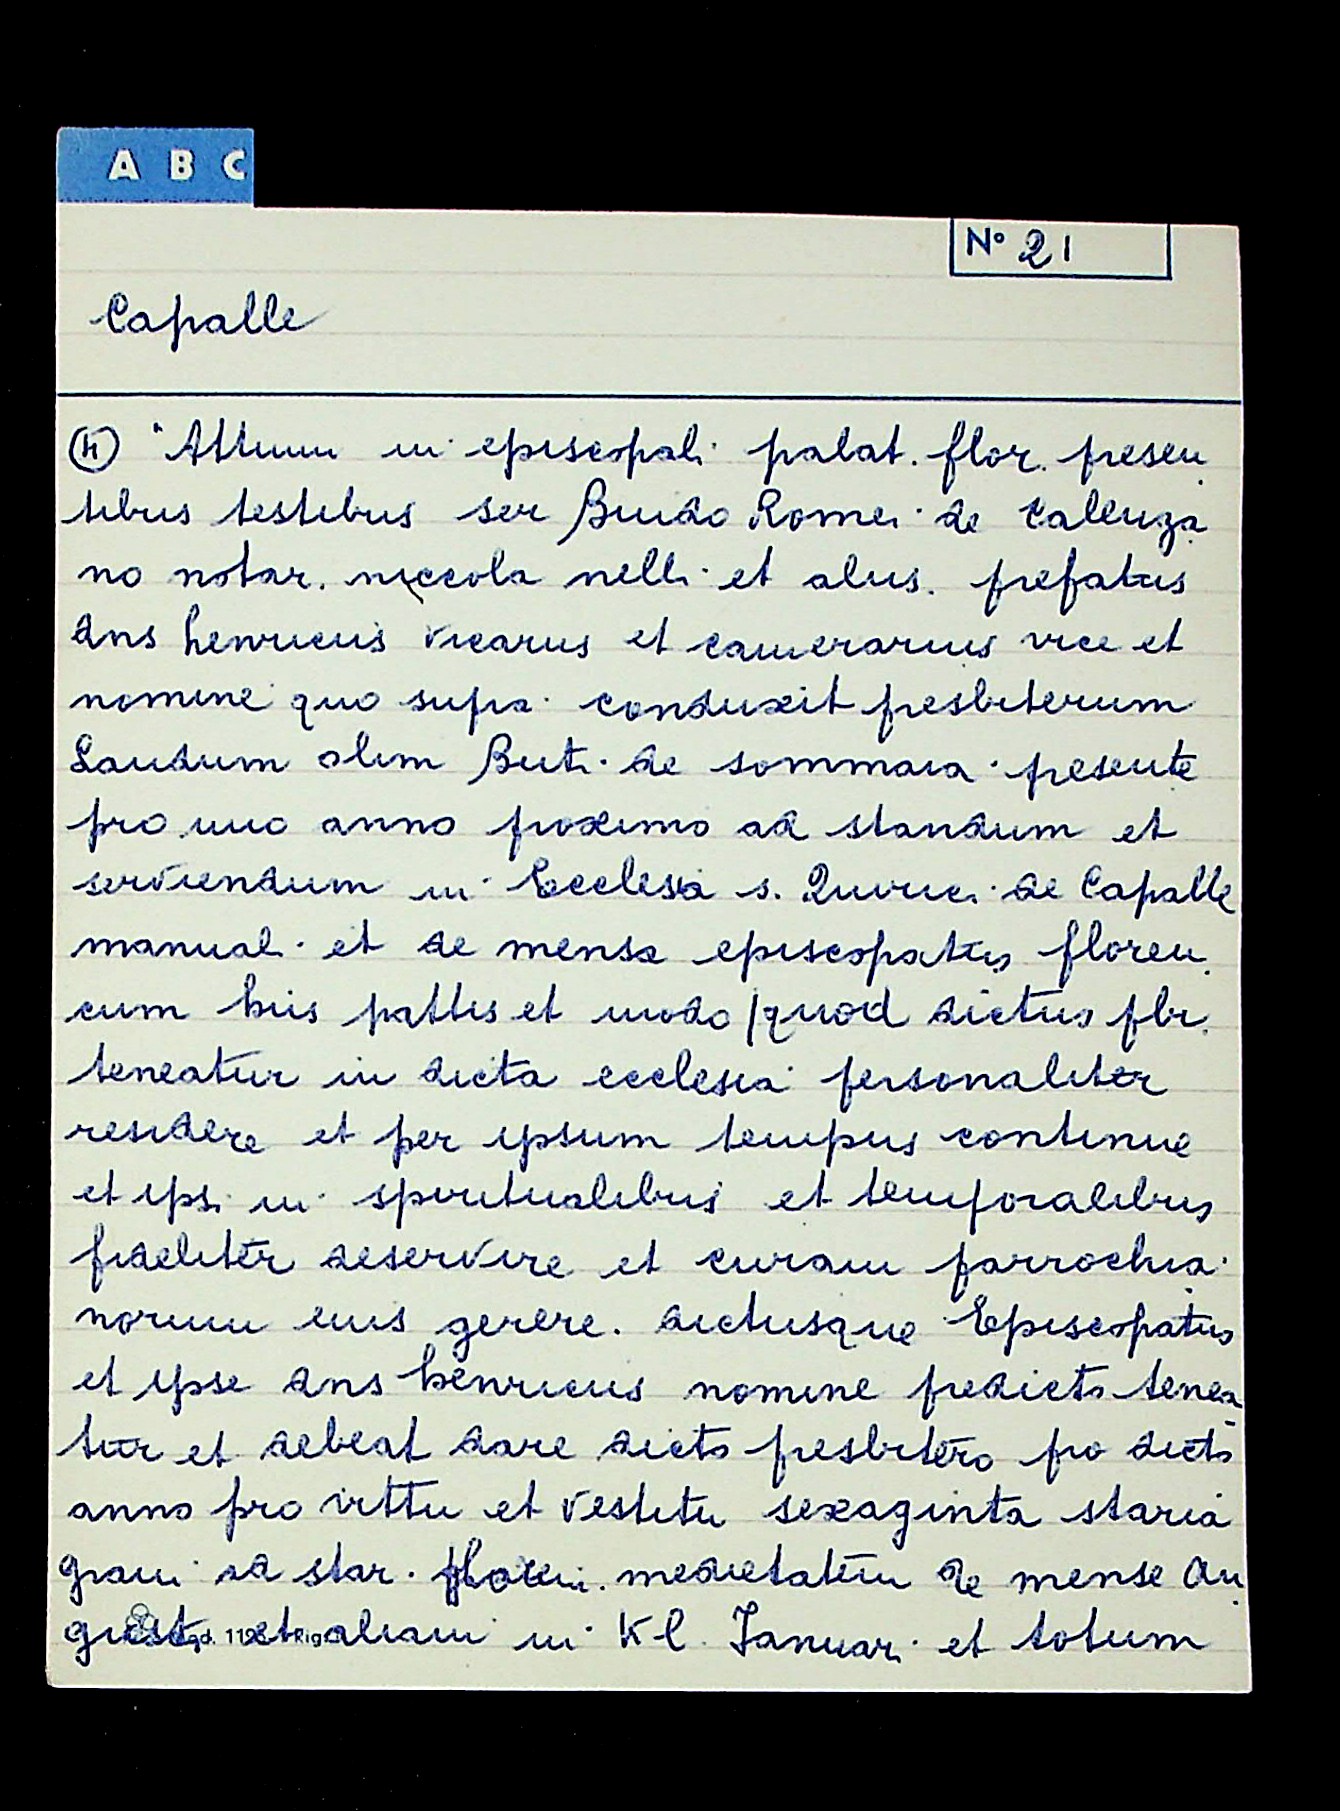 A B C
N° 21
Capalle
(4) "Attum in episcopali palat. flor. presen
tibus testibus ser Buido Romei de Calenza
no notar. niccola nelli et aliis. prefatus
dns henricus vicarius et camerarius vice et
nomine quo supra conduxit presbiterum
Landum olim Buti de sommaia presente
pro uno anno proximo ad standum et
serviendum in Ecclesia s. Quirici de Capalle
manuali et de mensa episcopatus floren.
cum hiis pattis et modo quod dictus pbr.
teneatur in dicta ecclesia personaliter
residere et per ipsum tempus continue
et ipsi in spiritualibus et temporalibus
fideliter deservire et curam parrochia
norum eius gerere. dictusque Episcopatus
et ipse dns henricus nomine predicto tenea
tur et debeat dare dicto presbitero pro dicto
anno pro vittu et vestitu sexaginta staria
grani ad star. floren. medietatem de mense Au
gusti et aliam in Kl. Januari et totum